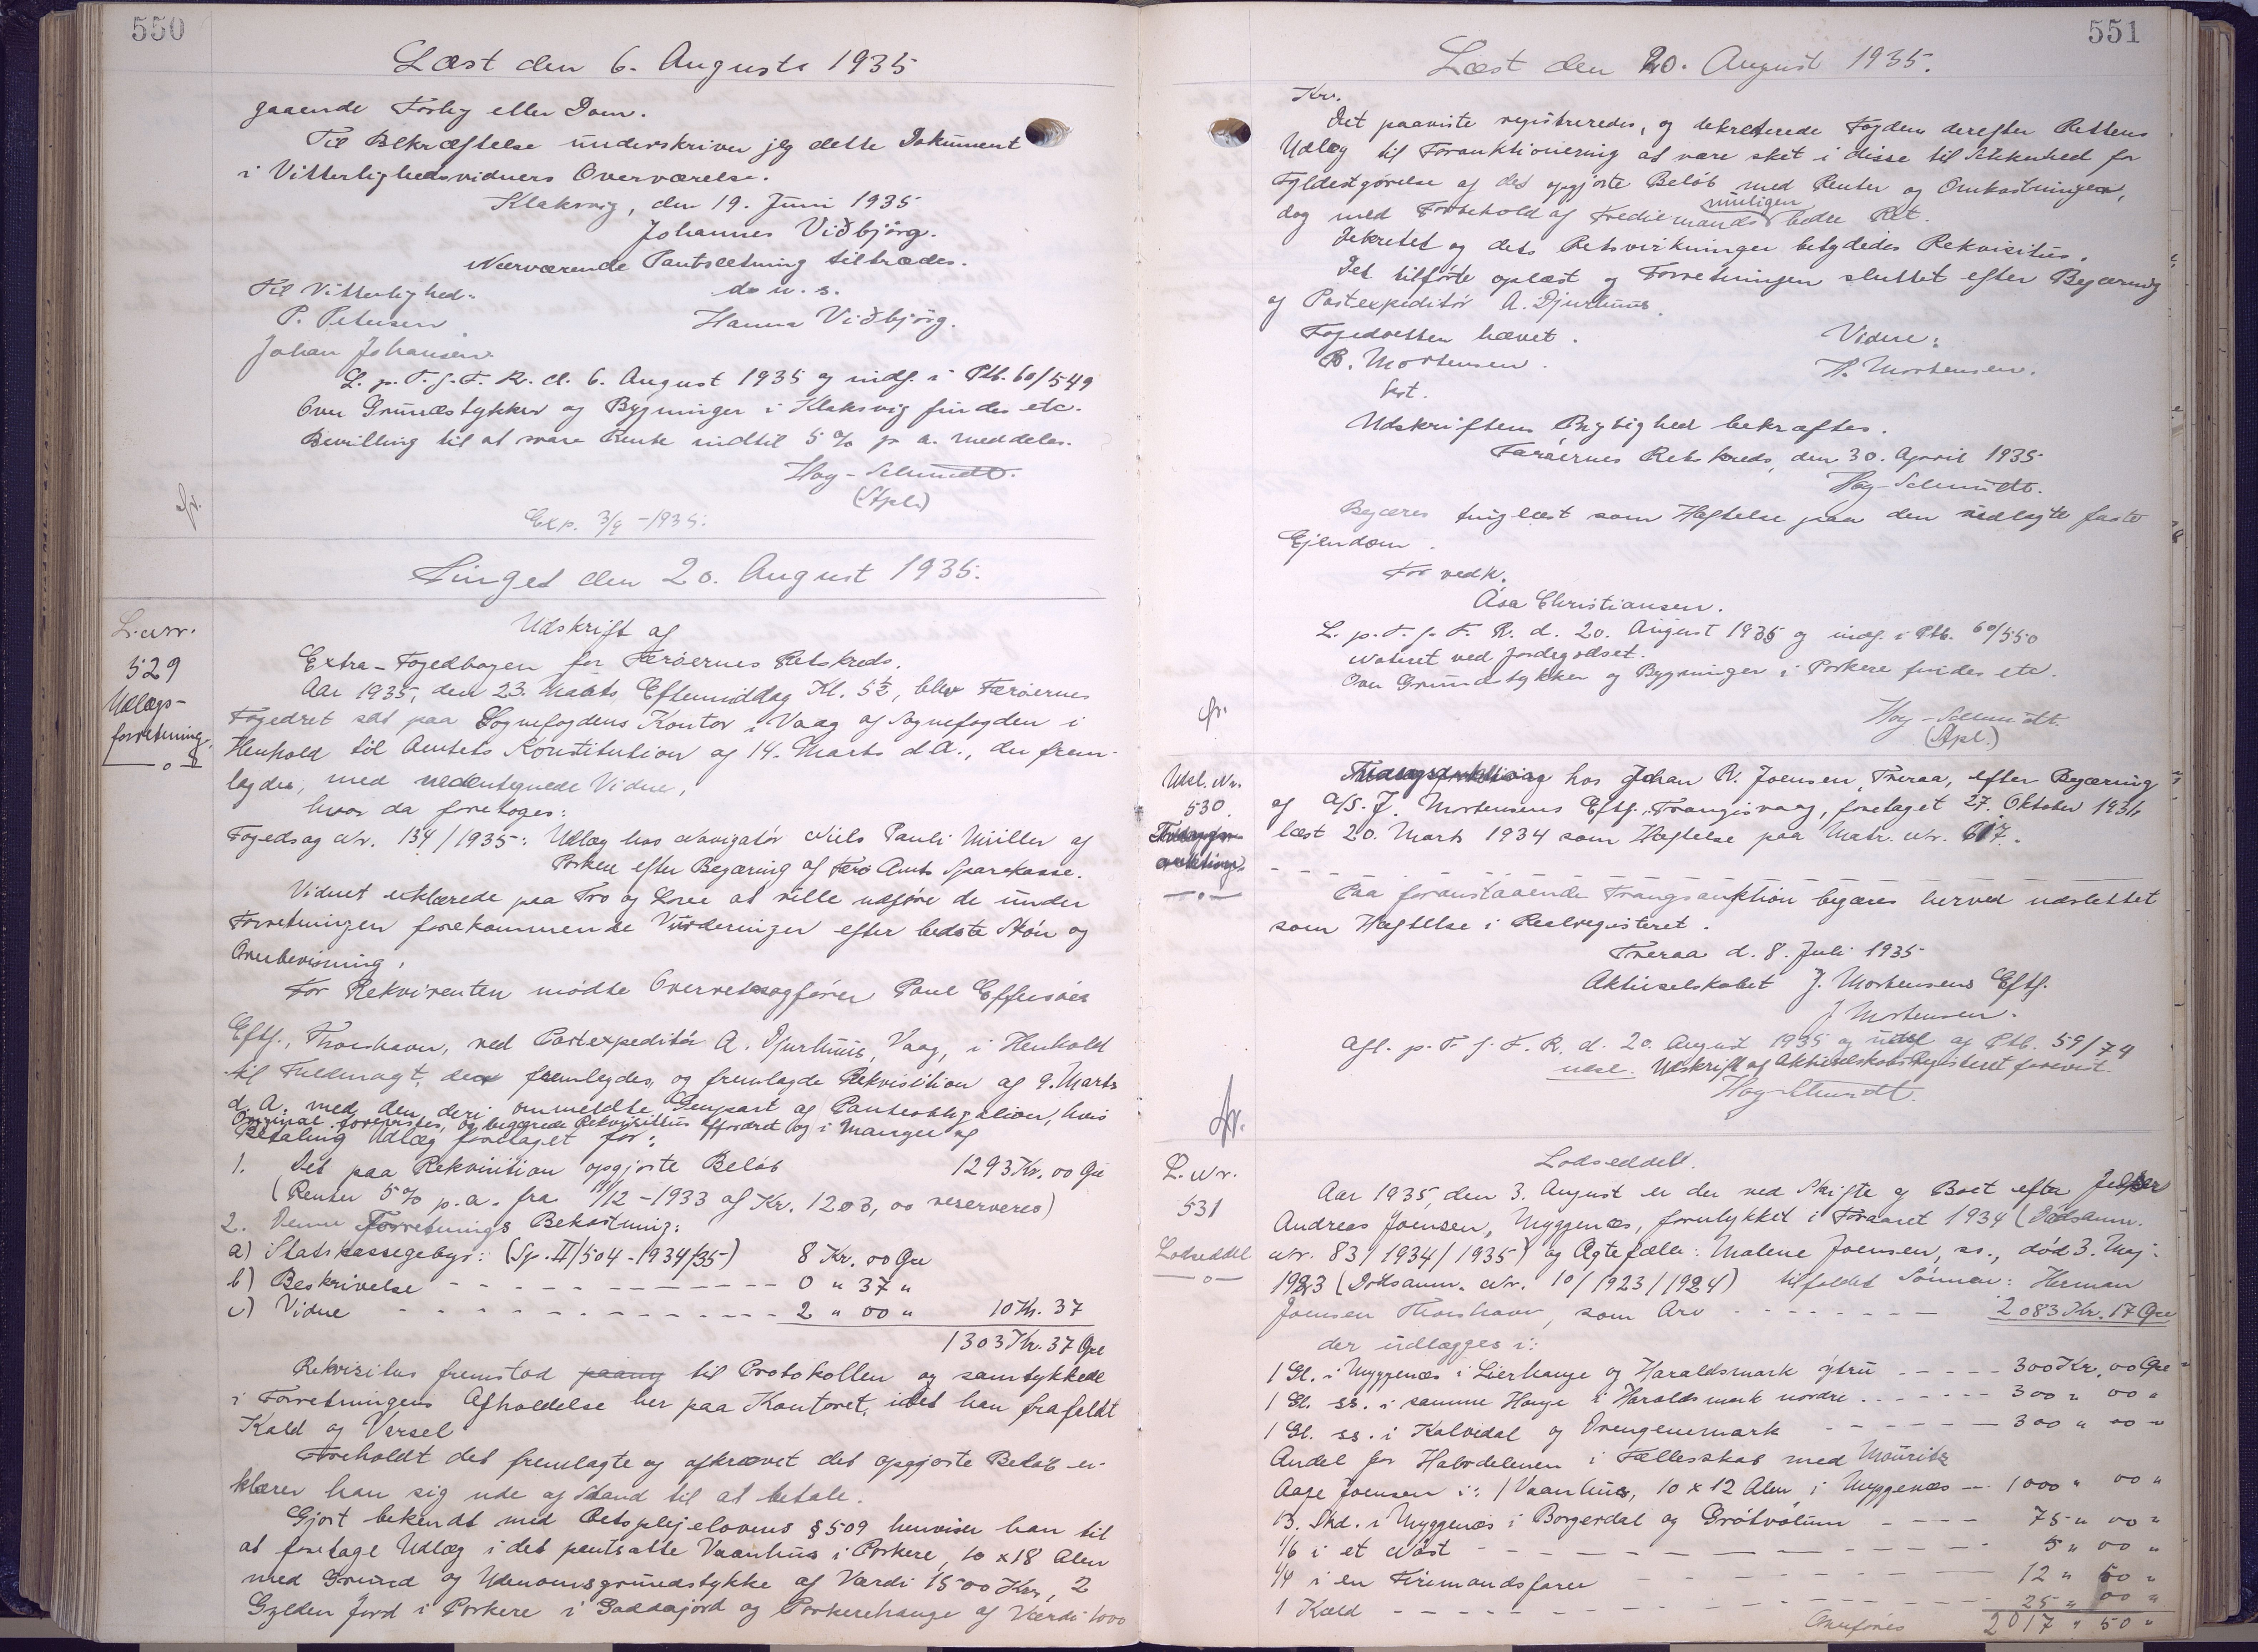 550
Læst den 6. Augusti 1935
gaaende Forlig eller Dom.
Til Bekræftelse underskriver jeg dette Dokument
i Vitterlighedsvidners Overværelse.
Klaksvig, den 19. Juni 1935
Johannes Viðbjörg.
Nærværende Pantsætning tiltrædes.
Til Vitterlighed: d. u. s.
P. Petersen Hanna Viðbjörg.
Johan Johansen
L. p. T. f. F. R. d. 6. August 1935 og indf. i Ptb. 60/549
Over Grundstykker og Bygninger i Klaksvig findes etc.
Bevilling til at svare Rente indtil 5% p a. meddeles.
Høy-Schmidt.
(Spl.)
Exp. 3/9 -1935.
Tinget den 20. August 1935.
L. Nr.
529
Udlægs-
forretning.
Udskrift af
Extra-Fogedbogen for Færøernes Retskreds.
Aar 1935, den 23. Marts Eftermiddag Kl. 5½, blev Færøernes
Fogedret sat paa Sognefogdens Kontor i Vaag af Sognefogden i
Henhold til Amtets Konstitution af 14. Marts d. A., der frem-
lagdes, med nedentegnede Vidne,
hvor da foretoges:
Fogedsag Nr. 134/1935: Udlæg hos Navigatør Niels Pauli Müller af
Porkere efter Begæring af Færø Amts Sparekasse.
Vidnet erklærede paa Tro og Love at ville udføre de under
Forretningen forekommende Vurderinger efter bedste Skøn og
Overbevisning.
For Rekvirenten mødte Overretssagfører Poul Effersøes
Eftf., Thorshavn, ved Postexpeditør A. Djurhuus, Vaag, i Henhold
til Fuldmagt, der fremlagdes, og fremlagde Rekvisition af 9. Marts
d. A. med den deri ommeldte Genpart af Panteobligation, hvis
Original forevistes, og begærede Rekvisitus affordret og i Mangel af
Betaling Udlæg foretaget for:
1. Det paa Rekvisition opgjorte Beløb 1293 Kr. 00 Øre
(Renter 5% p. a. fra 11/12 -1933 af Kr. 1203,00 reserveres)
2. Denne Forretnings Bekostning:
a) Statskassegebyr: (Sp. II/504-1934/35) 8 Kr. 00 Øre
b) Beskrivelse - - - 0 " 37 "
c) Vidne - - - 2 " 00 " 10 Kr. 37
1303 Kr. 37 Øre
Rekvisitus fremstod til Protokollen og samtykkede
i Forretningens Afholdelse her paa Kontoret, idet han frafaldt
Kald og Varsel
Foreholdt det fremlagte og afkrævet det opgjorte Beløb er-
klærer han sig ude af Stand til at betale.
Gjort bekendt med Retsplejelovens § 509 henviser han til
at foretage Udlæg i det pantsatte Vaanhus i Porkere, 10 x 18 Alen
med Grund og Udenomsgrundstykke af Værdi 1500 Kr., 2
Gylden Jord i Porkere i Gaddajord og Porkerehauge af Værdi 1000
551
Læst den 20. August 1935.
Kr.
Det paaviste registreredes, og dekreterede Fogden derefter Rettens
Udlæg til Forauktionering at være sket i disse til Sikkerhed for
Fyldestgørelse af det opgjorte Beløb med Renter og Omkostninger,
dog med Forbehold af Tredie mands muligen bedre Ret.
Dekretet og dets Retsvirkninger betydedes Rekvisitus.
Det tilførte oplæst og Forretningen sluttet efter Begæring
af Postexpeditør A. Djurhuus.
Fogedretten hævet. Vidne:
B. Mortensen. H. Mortensen.
kst.
Udskriftens Rigtighed bekræftes.
Færøernes Retskreds, den 30. April 1935
Høy-Schmidt.
Begæres tinglæst som Hæftelse paa den udlagte faste
Ejendom.
For vedk.
Ása Christiansen.
L. p. T. f. F. R. d. 20. August 1935 og indf. i Ptb. 60/550
Noteret ved Jordegodset.
Over Grundstykker og Bygninger i Porkere findes etc.
Høy-Schmidt.
(Spl.)
Udsl. Nr.
530.
hos Johan R. Joensen, Tveraa, efter Begæring
af A/S. J. Mortensens Eftf., Trangisvaag, foretaget 27. Oktober 1931,
læst 20. Marts 1934 som Hæftelse paa Matr. Nr. 617.
Paa foranstaaende Tvangsauktion begæres herved udslettet
som Hæftelse i Realregisteret.
Tveraa d. 8. Juli 1935
Aktieselskabet J. Mortensens Eftf.
J. Mortensen.
Afl. p. T. f. F. R. d. 20. August 1935 og udsl. af Ptb. 59/74
Udskrift af Aktieselskabs Registeret forevist.
Høy-Schmidt.
L. Nr.
531
Lodseddel
Lodseddel.
Aar 1935, den 3. August er der ved Skifte af Boet efter
Andreas Joensen, Myggenæs, forulykket i Foraaret 1934 (Dødsanm.
Nr. 83/1934/1935) og Ægtefælle: Malene Joensen, ss., død 3. Maj
1923 (Dødsanm. Nr. 10/1923/1924) tilfaldet Sønnen: Herman
Joensen Thorshavn, som Arv - - - 2083 Kr. 17 Øre
der udlægges i:
1 Gl. i Myggenæs i Lierhauge og Haraldsmark ytru - - - 300 Kr. 00 Øre
1 Gl. ss. i samme Hauge i Haraldsmark nordre - - - 300 " 00 "
1 Gl. ss. i Kalvidal og Drengenemark - - - 300 " 00 "
Andel for Halvdelen i Fællesskab med Mouritz
Aage Joensen i: 1 Vaanhus, 10 x 12 Alen i Myggenæs - - 1000 " 00 "
13. Skd. i Myggenæs i Borgerdal og Grótvølum - - - 75 " 00 "
1/6 i et Nøst - - - 5 " 00 "
1/4 i en Firemandsfarer - - - 12 " 50 "
1 Kæld - - - 25 " 00 "
Overføres 2017 " 50 "